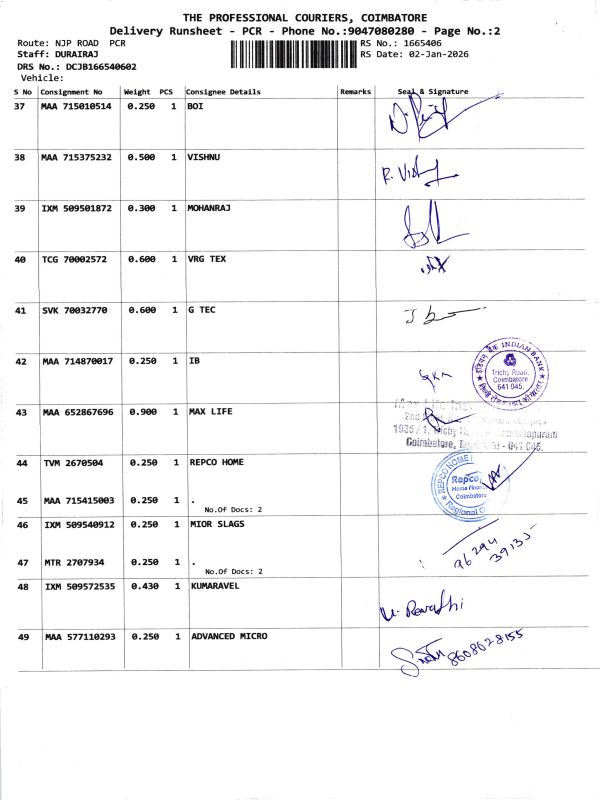 THE PROFESSIONAL COURIERS, COIMBATORE
Delivery Runsheet - PCR - Phone No.:9047080280 - Page No.:2
Route: NJP ROAD PCR
RS No.: 1665406
Staff: DURAIRAJ
RS Date: 02-Jan-2026
DRS No.: DCJB166540602
Vehicle:
S No Consignment No Weight PCS Consignee Details Remarks Seal & Signature
37 MAA 715010514 0.250 1 BOI
38 MAA 715375232 0.500 1 VISHNU
R. Vishnu
39 IXM 509501872 0.300 1 MOHANRAJ
40 TCG 70002572 0.600 1 VRG TEX
41 SVK 70032770 0.600 1 G TEC
42 MAA 714870017 0.250 1 IB
इंडियन बैंक INDIAN BANK
Trichy Road,
Coimbatore
641 045.
43 MAA 652867696 0.900 1 MAX LIFE
1935 / 1, Trichy
Coimbatore, - 641 045.
44 TVM 2670504 0.250 1 REPCO HOME
REPCO HOME
Repco
Home Finance
Coimbatore
Regional
45 MAA 715415003 0.250 1 .
No.Of Docs: 2
46 IXM 509540912 0.250 1 MIOR SLAGS
96294
39135
47 MTR 2707934 0.250 1 .
No.Of Docs: 2
48 IXM 509572535 0.430 1 KUMARAVEL
Revathi
49 MAA 577110293 0.250 1 ADVANCED MICRO
8608628155